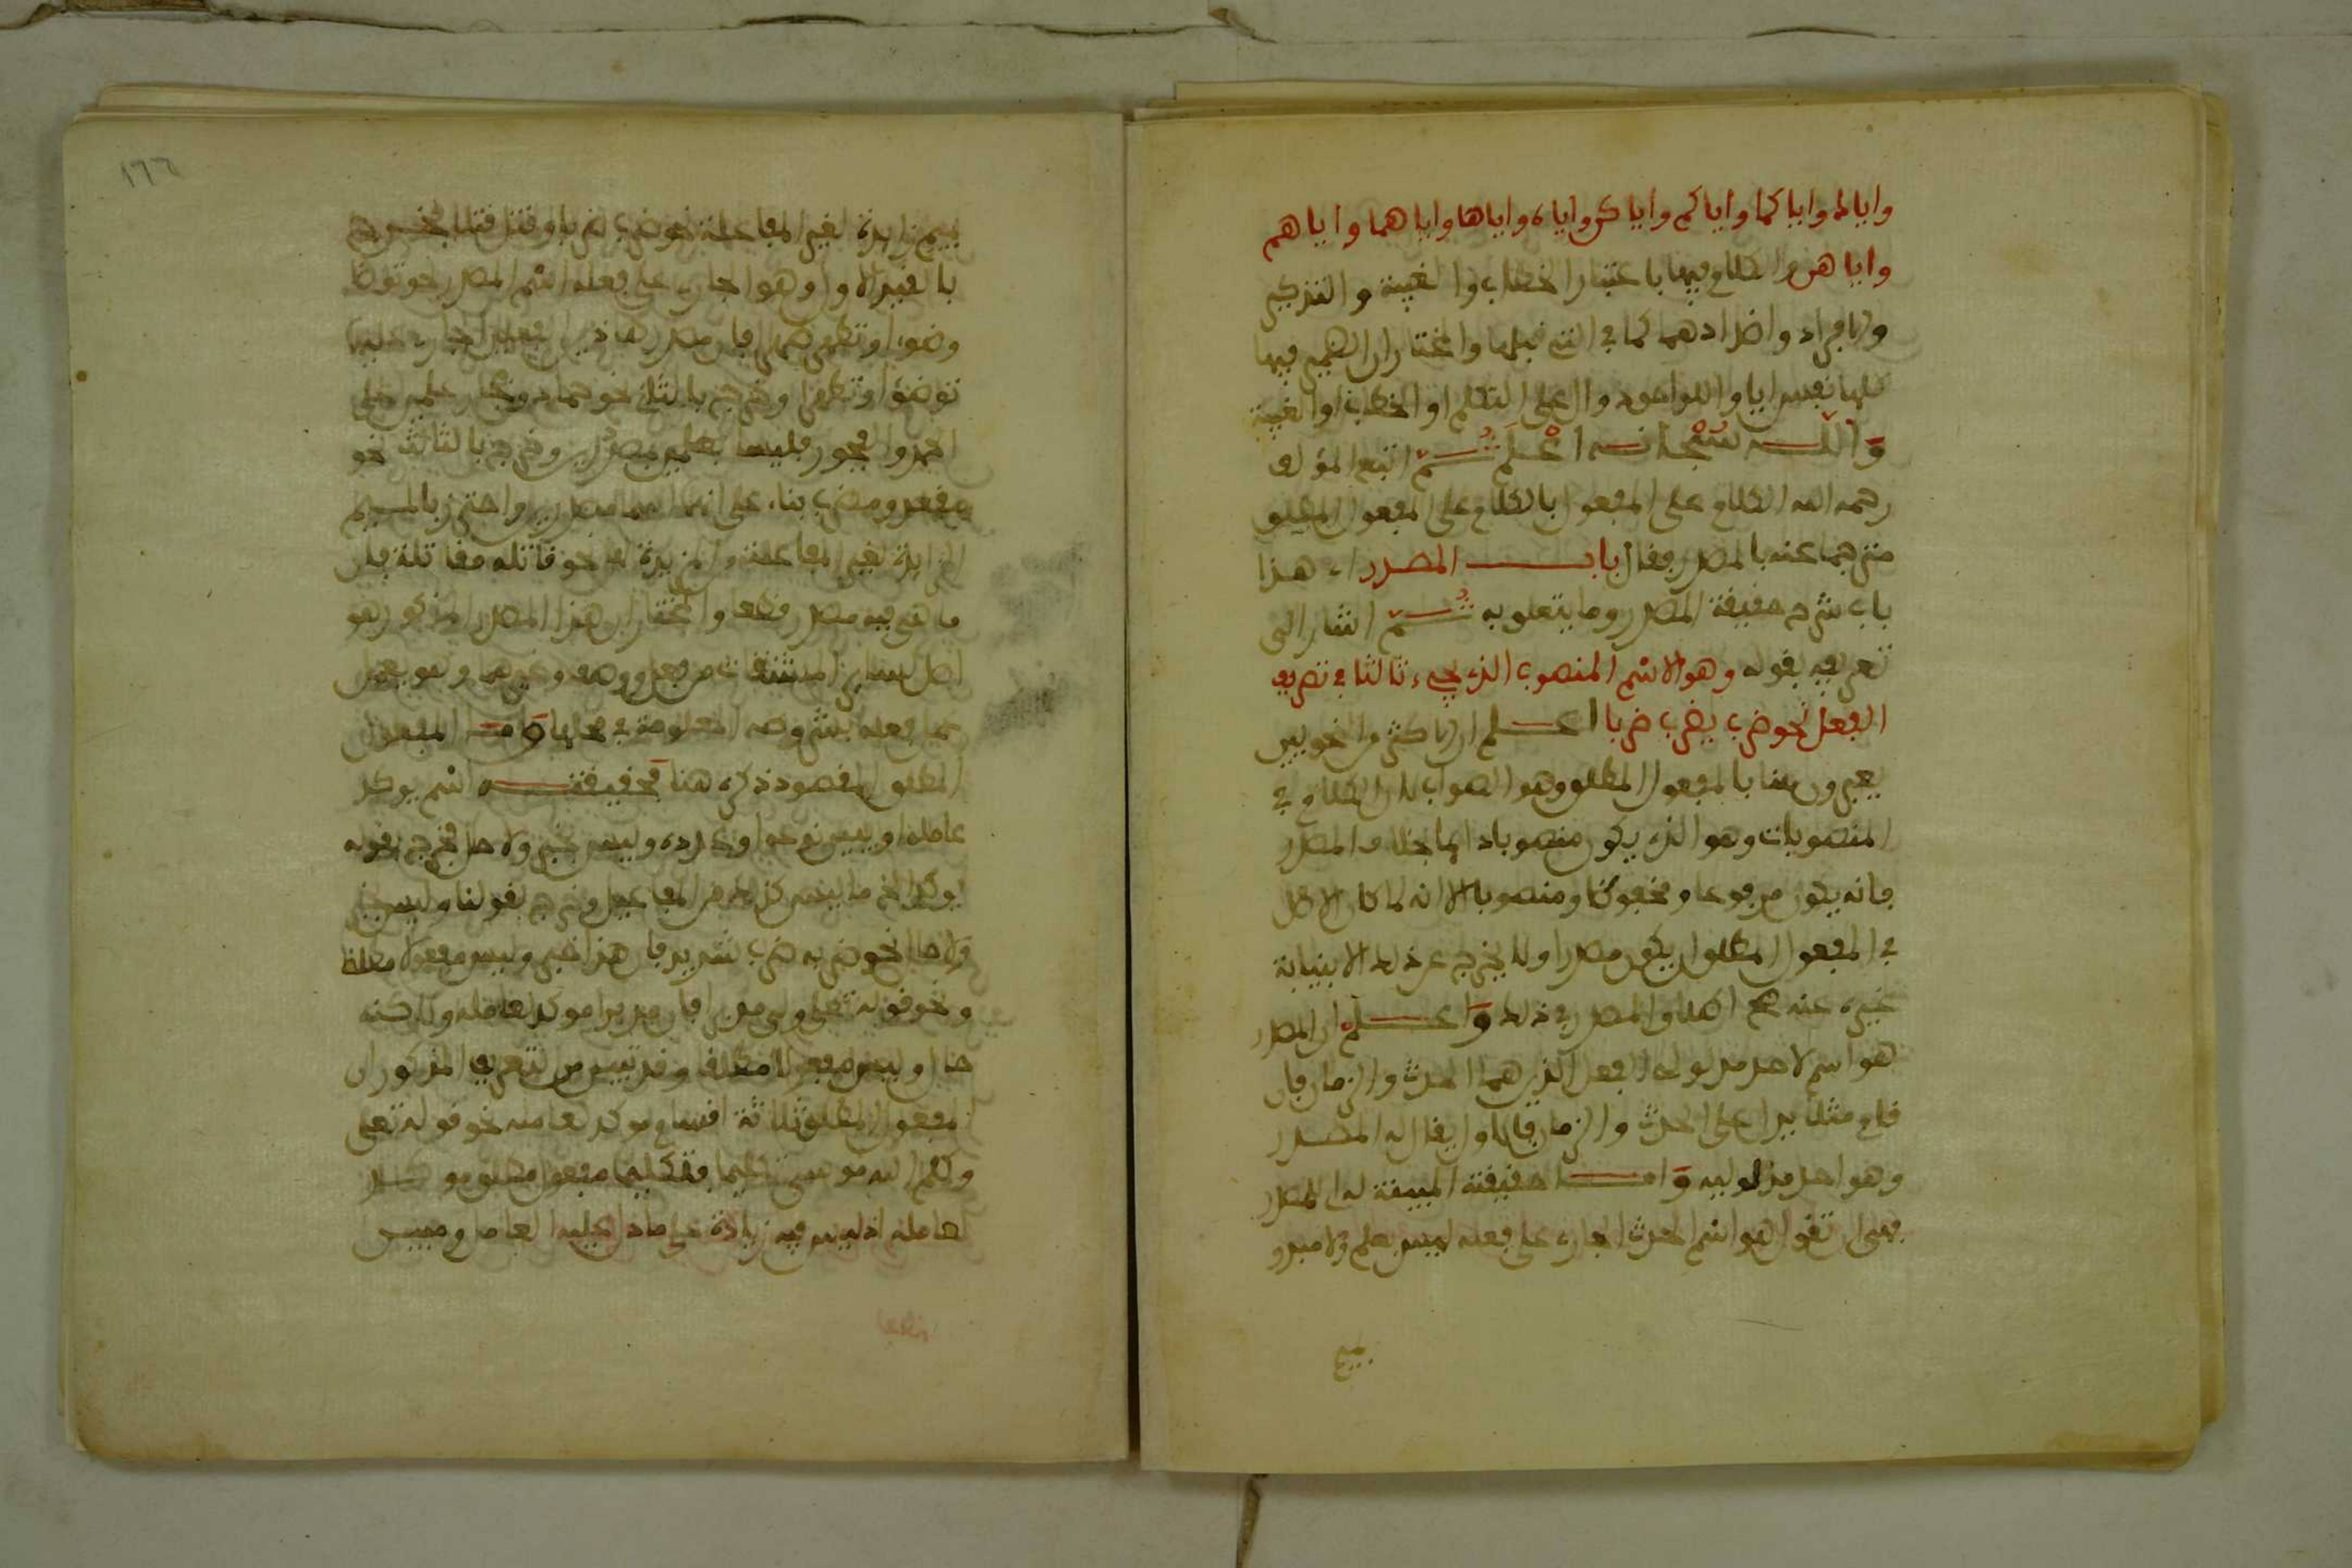 واياك واياكما واياكم واياكن واياه واياها واياهما واياهم
واياهن والكلام فيها باعتبار الخطاب والغيبة والتذكير
والافراد واضدادهما كما في التي قبلها والمختار ان الضمير فيها
كلها نفس ايا واللواحق دوال على التكلم او الخطاب او الغيبة
وَالله سُبْحانه اعْلَم ثُمّ اتبع المؤلف
رحمه الله الكلام على المفعول بالكلام على المفعول المطلق
مترجما عنه بالمصدر فقال باب المصدر اي هذا
باب شرح حقيقة المصدر وما يتعلق به ثُمّ اشار الى
تعريفه بقوله وهو الاسْم المنصوب الذي يجيء ثالثا في تصريف
الفعل نحو ضرب يضرب ضربا اعلم ان اكثر النحويين
يعبرون هنا بالمفعول المطلق وهو الصواب لان الكلام في
المنصوبات وهو الذي يكون منصوبا دائما بخلاف المصدر
فانه يكون مرفوعا ومخفوضا ومنصوبا الا انه لما كان الاصل
في المفعول المطلق ان يكون مصدرا ولا يخرج عن ذلك الا بنيابة
غيره عنه صح اطلاق المصدر في ذلك وَاعلم ان المصدر
هو اسم لاحد مدلولي الفعل الذين هما الحدث والزمان فان
قام مثلا يدل على الحدث والزمان فالاول يقال له المصدر
وهو احد مدلوليه وَاما حقيقته المبينة له اي المصدر
فهي ان تقول هو اسْم الحدث الجاري على فعله ليس بعلم ولا مبدو
بميم
١٦٦
بميم زايدة لغير المفاعلة نحو ضرب ضربا وقتل قتلا فخرج
بالقيد الاول وهو الجاري على فعله اسْم المصدر نحو توضا
وضوءا وتطهر طهرا فان مصدر هذين الفعلين الجاري عليهما
توضؤا وتطهرا وخرج بالثاني نحو حماد وفجار علمين على
الحمد والفجور فليسا بمصدرين وخرج بالثالث نحو
مقعد ومضرب بناء على انهما ليسا مصدرين واحترز بالميم
الزايدة لغير المفاعلة من المزيدة لها نحو قاتله مقاتلة فان
ما هي فيه مصدر قطعا والمختار ان هذا المصدر المذكور هو
اصل لساير المشتقات من فعل ووصف وغيرهما وهو يعمل
عمل فعله بشروطه المعلومة في محلها وَاما المفعول
المطلق المقصود ذكره هنا فحقيقته اسْم يوكد
عامله او يبين نوعه او عدده وليس خبر ولا حالا فخرج بقوله
يوكد الخ ما ليس كذلك من المفاعيل وخرج بقولنا وليس خبر
ولا حالا نحو ضربه ضرب شديد فان هذا خبر وليس مفعولا مطلقا
ونحو قوله تعلى ولى مدبرا فان مدبرا موكد لعامله ولاكنه
حال وليس مفعولا مطلقا وقد تبين من التعريف المذكور ان
المفعول المطلق ثلاثة اقسام موكد لعامله نحو قوله تعلى
وكلم الله موسى تكليما فتكليما مفعول مطلق موكد
لعامله اذ ليس فيه زيادة على ما دل عليه العامل ومبين